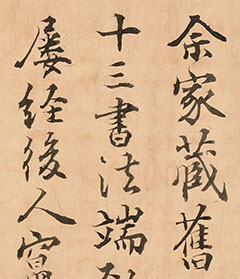 余家藏舊
十三書法端
屡經後人